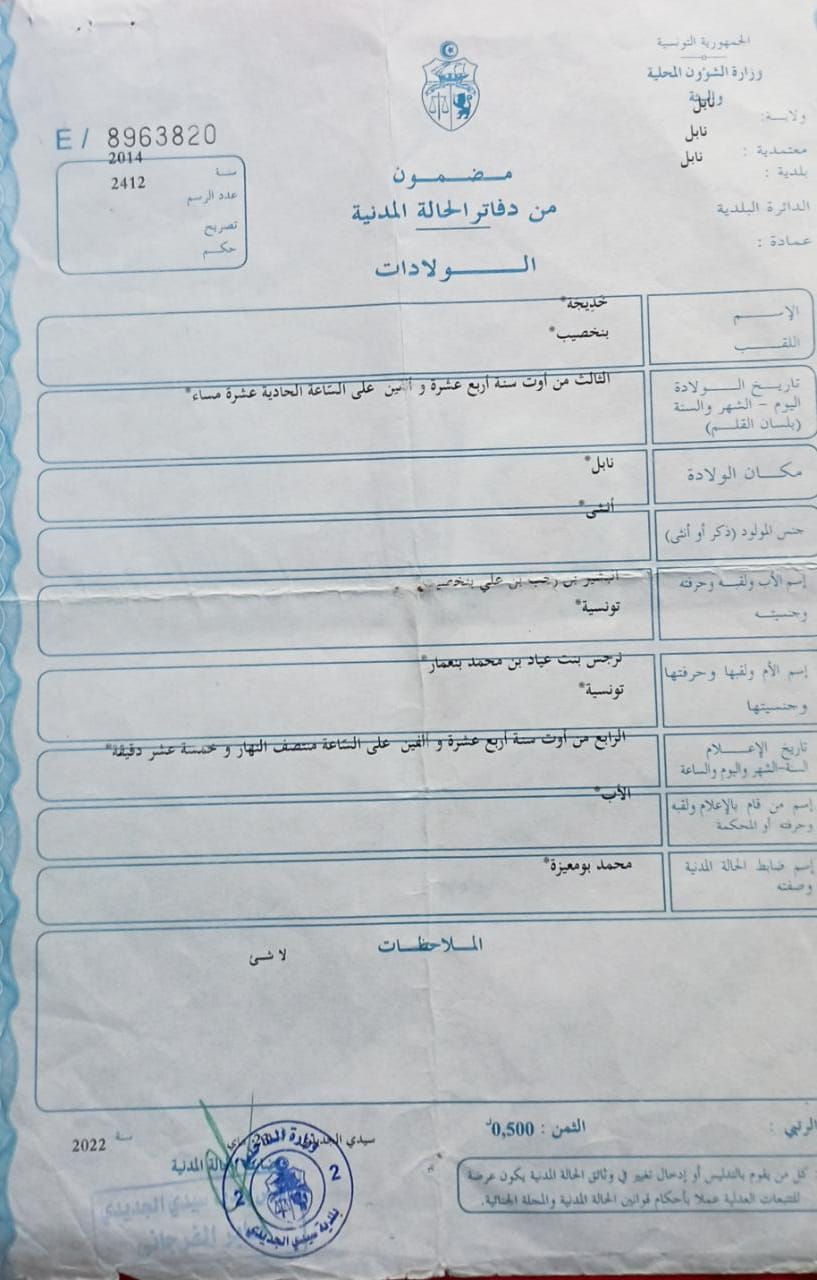 الجمهورية التونسية
وزارة الشؤون المحلية
والبيئة
ولاية: نابل
معتمدية : نابل
بلدية : نابل
الدائرة البلدية
عمادة :
E / 8963820
سنة 2014
عدد الرسم 2412
تصريح
حكم
مضمون
من دفاتر الحالة المدنية
الولادات
الإسم خديجة*
اللقب بنخصيب*
تاريخ الولادة
اليوم - الشهر والسنة
(بلسان القلم)
الثالث من أوت سنة أربع عشرة و ألفين على الساعة الحادية عشرة مساء*
مكان الولادة نابل*
جنس المولود (ذكر أو أنثى) أنثى*
إسم الأب ولقبه وحرفته البشير بن رجب بن علي
وجنسيته تونسية*
إسم الأم ولقبها وحرفتها نرجس بنت عياد بن محمد بنعمار*
وجنسيتها تونسية*
تاريخ الإعلام
السنة-الشهر واليوم والساعة
الرابع من أوت سنة أربع عشرة و ألفين على الساعة منتصف النهار و خمسة عشر دقيقة*
إسم من قام بالإعلام ولقبه
وحرفته أو المحكمة
الأب*
إسم ضابط الحالة المدنية
وصفته
محمد بومعيزة*
الملاحظات
لا شئ
الرتبي :
الثمن : 0,500د
سيدي الجديدي
ماي
سنة 2022
الحالة المدنية
كل من يقوم بالتدليس أو إدخال تغيير في وثائق الحالة المدنية يكون عرضة
للتتبعات العدلية عملا بأحكام قوانين الحالة المدنية والمجلة الجنائية.
وزارة الداخلية
2 2
بلدية سيدي الجديدي
سيدي الجديدي
الفرجاني